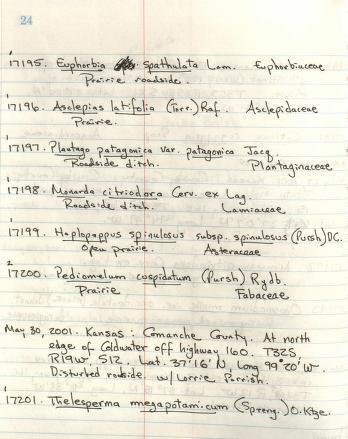 24
17195. Euphorbia spathulata Lam. Euphorbiaceae
Prairie roadside.
17196. Asclepias latifolia (Torr.) Raf. Asclepidaceae
Prairie.
17197. Plantago patagonica var. patagonica Jacq.
Roadside ditch. Plantaginaceae
17198. Monarda citriodora Cerv. ex Lag.
Roadside ditch. Lamiaceae
17199. Haplopappus spinulosus subsp. spinulosus (Pursh) DC.
Open prairie. Asteraceae
2
17200. Pediomelum cuspidatum (Pursh) Rydb.
Prairie Fabaceae
May 30, 2001. Kansas: Comanche County. At north
edge of Coldwater off highway 160. T32S
R19W S12. Lat. 37°16'N, Long 99°20'W.
Disturbed roadside. w/ Lorrie Parrish.
17201. Thelesperma megapotamicum (Spreng.) O. Ktze.